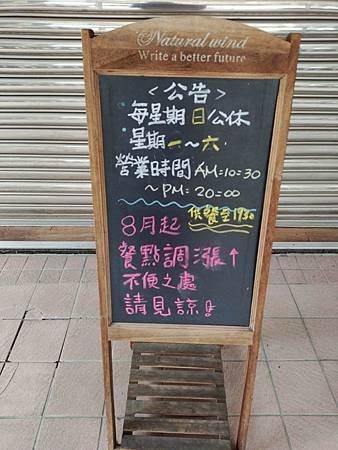 Natural wind
Write a better future
<公告>
每星期日公休
星期一~六
營業時間 AM=10=30
~PM=20=00
供餐至1930
8月起
餐點調漲↑
不便之處
請見諒!